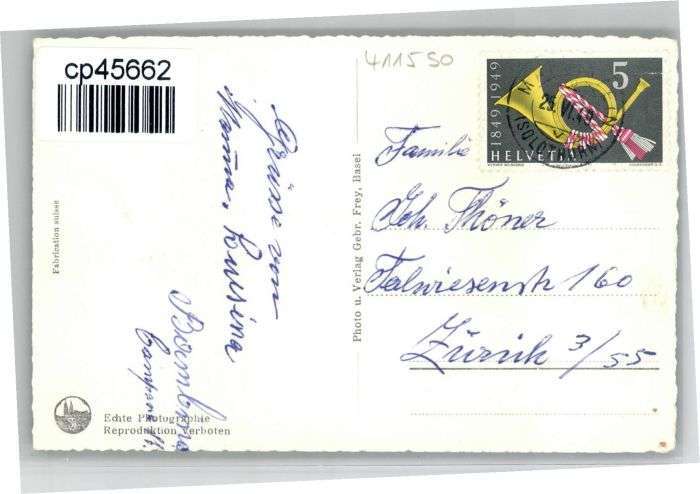 cp45662
411550
1849-1949
5
HELVETIA
(SOLOTHURN)
Familie
Joh. Thöner
Falwiesenstr 160
Zürich 3/55
Grüsse von
Mama,
Fabrication suisse
Photo u. Verlag Gebr. Frey, Basel
Echte Photographie
Reproduktion verboten